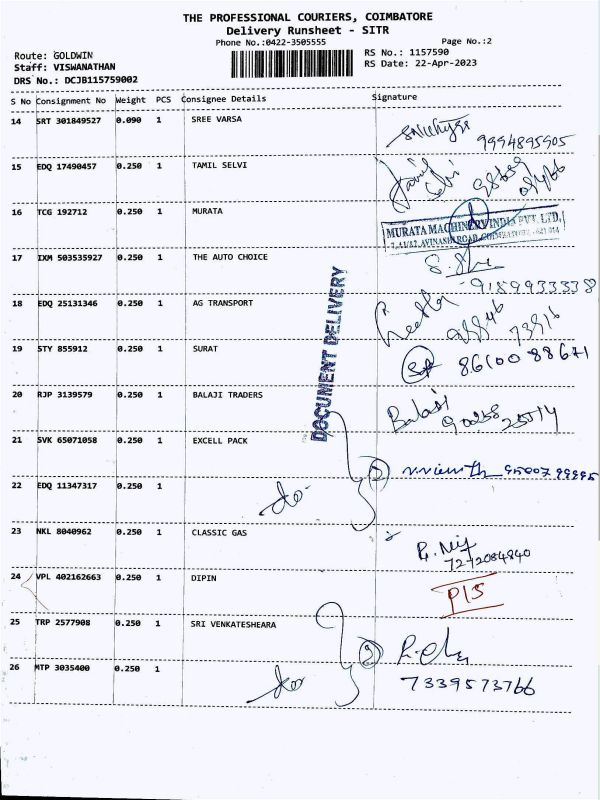 THE PROFESSIONAL COURIERS, COIMBATORE
Delivery Runsheet - SITR
Phone No.:0422-3505555
Page No.:2
Route: GOLDWIN
RS No.: 1157590
Staff: VISWANATHAN
RS Date: 22-Apr-2023
DRS No.: DCJB115759002
S No Consignment No Weight PCS Consignee Details Signature
14 SRT 301849527 0.090 1 SREE VARSA
9994895905
15 EDQ 17490457 0.250 1 TAMIL SELVI
Tamil
Selvi
16 TCG 192712 0.250 1 MURATA
MURATA MACHINERY INDIA PVT. LTD.
AVINASHI ROAD, COIMBATORE - 641 014
17 IXM 503535927 0.250 1 THE AUTO CHOICE
9189933338
18 EDQ 25131346 0.250 1 AG TRANSPORT
DOCUMENT DELIVERY
19 STY 855912 0.250 1 SURAT
86100 88671
20 RJP 3139579 0.250 1 BALAJI TRADERS
Balaji
21 SVK 65071058 0.250 1 EXCELL PACK
22 EDQ 11347317 0.250 1
do
23 NKL 8040962 0.250 1 CLASSIC GAS
7272084840
24 VPL 402162663 0.250 1 DIPIN
P/S
25 TRP 2577908 0.250 1 SRI VENKATESHEARA
26 MTP 3035400 0.250 1
do
7339573766